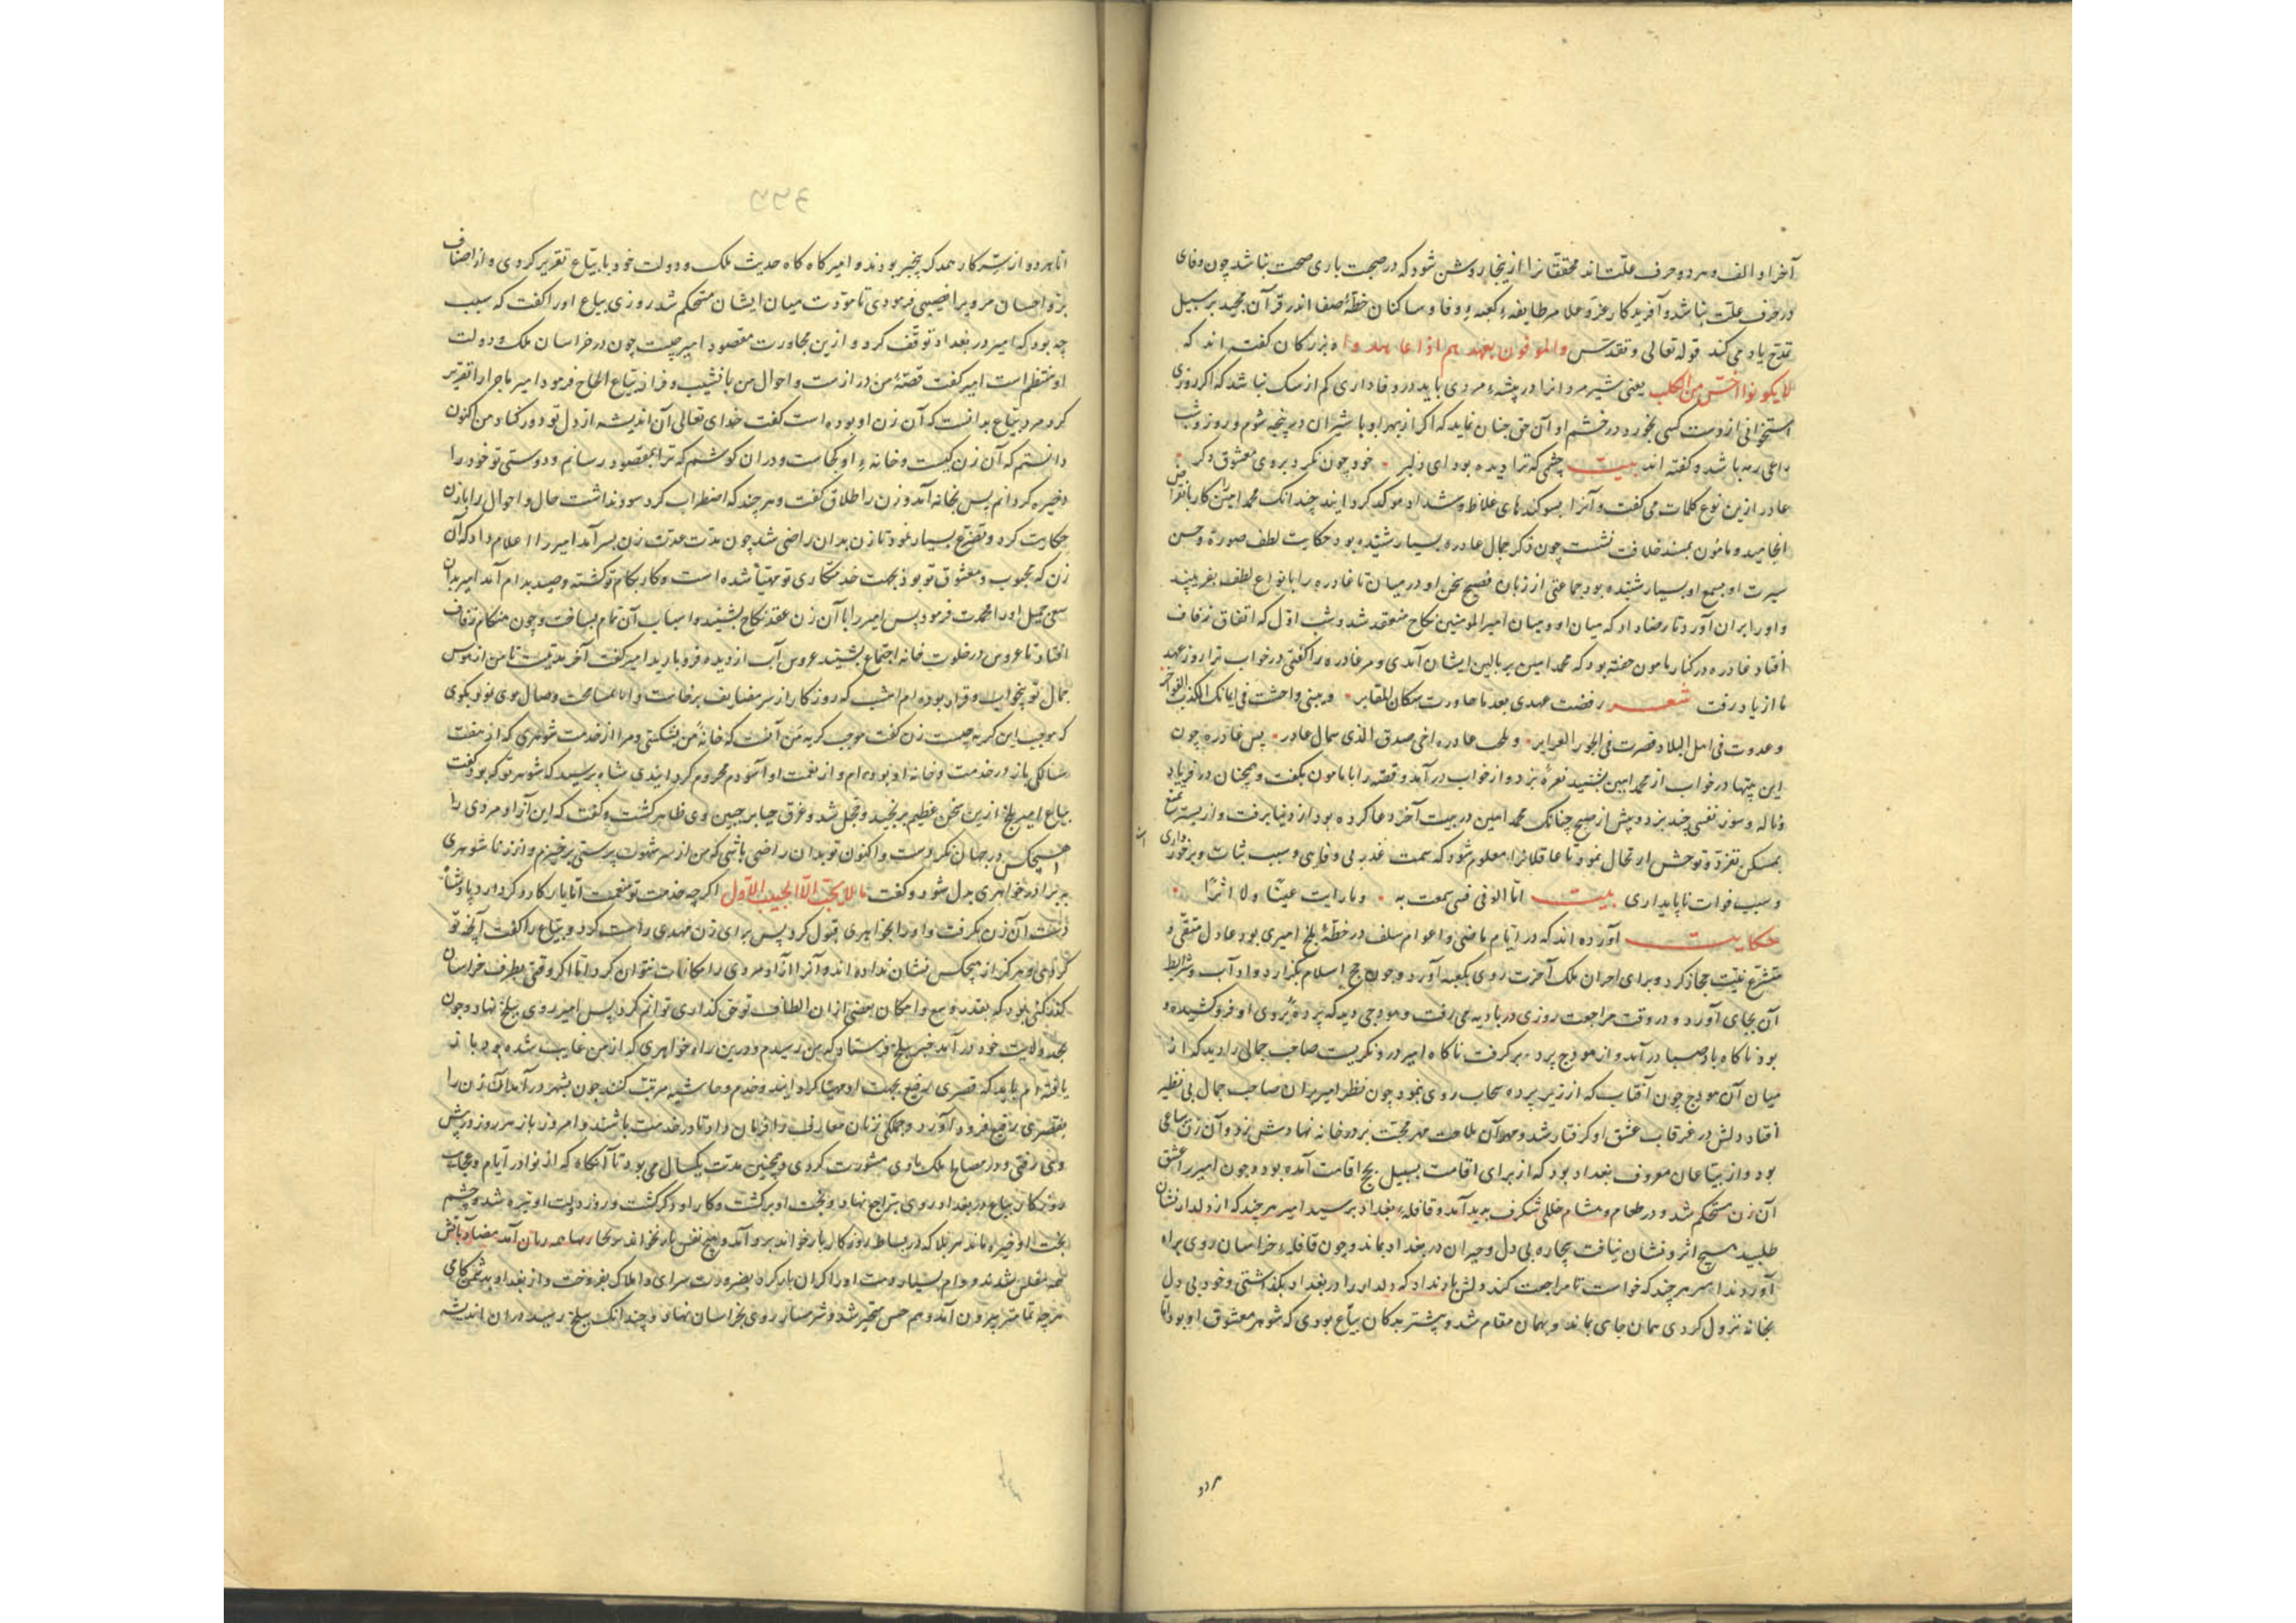 آخر او الف و هر دو حرف علّت اند محققانرا ازینجا روشن شود که در صحبت یاری صحت نباشد چون وفای
در حرف علّت نباشد و آفریدکار عزّ و علا مر طایفهٔ کعبهٔ وفا و ساکنان خطّهٔ صفا اندر قرآن مجید بر سبیل
تمدّح یاد می کند قوله تعالی و تقدّس والموفون بعهدهم اذا عاهدوا بزرکان کفته اند که
لا یکونوا اخسّ من الکلب یعنی شیر مردانرا در بیشهٔ مردی باید در وفاداری کم از سک نباشد که اکر روزی
استخوانی از دست کسی بخورد در خشم او آن حق چنان نماید که اکر از بهر او با شیران در پنجه شوم و روز و شب
داعی رمه باشد و کفته اند بیت چشمی که ترا دیده بود ای دلبر خود چون نکرد بروی معشوق دکر
عادر ازین نوع کلمات می کفت و آنرا بسوکندهای غلاظ و شداد موکد کردانید چندانک محمد امین را کار بانقراض
انجامید و مامون بمسند خلافت نشست چون ذکر جمال عادره بسیار شنیده بود حکایت لطف صورة و حسن
سیرت او بسمع او بسیار شنیده بود جماعتی از زبان فصیح سخن او در میان تا غادره را بانواع لطف بفریبند
و او را بران آورد تا رضا داد که میان او و میان امیر المومنین نکاح منعقد شد و شب اوّل که اتفاق زفاف
افتاد غادره در کنار مامون خفته بود که محمد امین بر بالین ایشان آمدی و مر غادره را کفتی در خواب ترا روز عهد
ما از یاد رفت شعر رفضت عهدی بعد ما جاورت سکان المقابر
و غدوت فی اهل البلاد پس غادره چون
این بیتها در خواب از محمد امین بشنید نعرهٔ بزد و از خواب درآمد و قصّه را با مامون بکفت و همچنان در فریاد
و ناله و سوز نفسی چند بزد و پیش از صبح چنانک محمد امین در بیت آخر دعا کرده بود از دنیا برفت و از بستر تمتع
بمسکن تفرّد و توحش ارتحال نمود تا عاقلانرا معلوم شود که سمت غدر بی وفایی و سبب ثبات و برخورداری
و سبب فوات ناپایداری بیت امّا الوفی فنی سمعت به و ما رایت عینًا ولا اثرًا
حکایت آورده اند که در ایّام ماضی و اعوام سلف در خطّهٔ بلخ امیری بود عادل متقی و
متشرع نیّت حجاز کرد و برای احراز ملک آخرت روی بکعبه آورد و چون حج اسلام بکزارد و آداب و شرایط
آن بجای آورد و در وقت مراجعت روزی در بادیه می رفت و هودجی دید که پردهٔ بروی او فروکشیده
بود ناکاه باد صبا درآمد و از هودج پرده برکرفت ناکاه امیر درو نکریست صاحب جمالی را دید که از
میان آن هودج چون آفتاب که از زیر پرده سحاب روی نمود چون نظر امیر بران صاحب جمال بی نظیر
افتاد دلش در غرقاب عشق او کرفتار شد و مهر آن ملاحت مهر محبّت بر در خانه نهادش زد و آن زن بیاعی
بود و از بیّاعان معروف بغداد بود که از برای اقامت بسبیل حج اقامت آمده بود و چون امیر را عشق
آن زن مستحکم شد و در طعام و مشام خللی شکرف پدید آمد و قافلهٔ بغداد برسید امیر هر چند که از دلدار نشان
طلبید هیچ اثر و نشان نیافت بیچاره بی دل و حیران در بغداد بماند و چون قافلهٔ خراسان روی براه
آوردند امیر هر چند که خواست تا مراجعت کند دلش بار نداد که دلدار را در بغداد بکذاشتی و خود بی دل
بخانه نزول کردی همان جای بماند و بهمان مقام شد و بیشتر بدکان بیّاع بودی که شوهر معشوق او بود امّا
هر دو
امّا هر دو از سرّ کار همدکر بیخبر بودند و امیر کاه کاه حدیث ملک و دولت خود با بیّاع تقریر کردی و از اصناف
برّ و احسان مر ویرا نصیبی فرمودی تا مودّت میان ایشان مستحکم شد روزی بیاع او را کفت که سبب
چه بود که امیر در بغداد توقّف کرد و ازین مجاورت مقصود امیر چیست چون در خراسان ملک و دولت
او منتظم است امیر کفت قصّهٔ من درازست و احوال من با نشیب و فراز بیّاع الحاح فرمود امیر ماجرا را تقریر
کرد مرد بیّاع بدانست که آن زن او بوده است کفت خدای تعالی آن اندیشه از دل تو دور کناد من اکنون
دانستم که آن زن کیست و خانهٔ او کجاست و دران کوشم که ترا بمقصود رسانم و دوستی تو خود را
ذخیره کردانم پس بخانه آمد و زن را طلاق کفت و هر چند که اضطراب کرد سود نداشت حال و احوال را با زن
حکایت کرد و تضرّع بسیار نمود تا زن بدان راضی شد چون مدّت عدّت زن بسر آمد امیر را اعلام داد که آن
زن که محبوب و معشوق تو بود بجهت خدمتکاری تو مهیّا شده است و کار بکام تو کشته و صید بدام آمد امیر بدان
سعی جمیل او را محمدت فرمود پس امیر را با آن زن عقد نکاح بستند و اسباب آن تمام بساخت و چون هنکام زفاف
افتاد تا عروس در خلوت خانه اجتماع بشیند عروس آب از دیده فرو بارید امیر کفت آخر مدّتیست تا من از هوس
جمال تو بیخواب و قرار بوده ام امشب که روزکار از سر مضایف برخاست
که موجب این کریه چیست زن کفت موجب کریهٔ من آنست که خانهٔ من بشکستی و مرا از خدمت شوهری که از هفت
سالکی باز در خدمت و خانه او بوده ام و از نعمت او آسوده ام محروم کردانیدی شاه پرسید که شوهر تو که بود کفت
بیاع امیر بلخ ازین سخن عظیم برنجید و خجل شد و عرق حیا بر جبین وی ظاهر کشت و کفت که این آزاد مردی با
هیچکس در جهان نکردست و اکنون تو بدان راضی باشی که من از سر شهوت پرستی برخیزم و از زناشوهری
ببرادر خواهری بدل شود و کفت ما لا یحبّ الّا الحبیب الاوّل اکرچه خدمت تو نعمت امّا یار کار دکر دارد پادشاه
دست آن زن بکرفت و او را بخواهری قبول کرد پس برای زن مهدی راست کردند و بیّاع را کفت آنچه تو
کردهٔ هرکز از هیچکس نشان نداده اند و آنرا آزاد مردی را مکافات نتوان کرد امّا اکر وقتی بطرف خراسان
کذر کنی بود که بقدر وسع و امکان بعضی از ان الطاف تو حق کذاری توانم کرد پس امیر روی ببلخ نهاد و چون
بحد ولایت خود درآمد خبر ببلخ فرستاد که من رسیدم و درین راه خواهری که از من غایب شده بود باز
یافته ام باید که قصری رفیع بجهت او مهیّا کردانند و خدم و حاشیه مرتب کنند چون بشهر درآمد آن زن را
بقصری رفیع فرود آورد و جملکی زنان معارف را فرمان داد تا در خدمت باشند و امیر باز هر روز در پیش
وی رفتی و در مصالح ملک با وی مشورت کردی و همچنین مدّت یکسال می بود تا آنکاه که از نوادر ایّام و عجایب
روزکار بیّاع در بغداد روی بتراجع نهاد و بخت او برکشت و کار او دکر کشت و روز دولت او تیره شد و چشم
بخت او خیره ماند
همه مفلس شدند و وام بسیار دست او را کران بار کرد بضرورت سرای و املاک بفروخت و از بغداد
هر چه تمامتر بیرون آمد و شرمسار روی بخراسان نهاد و چندانک ببلخ رسید دران اندیشه